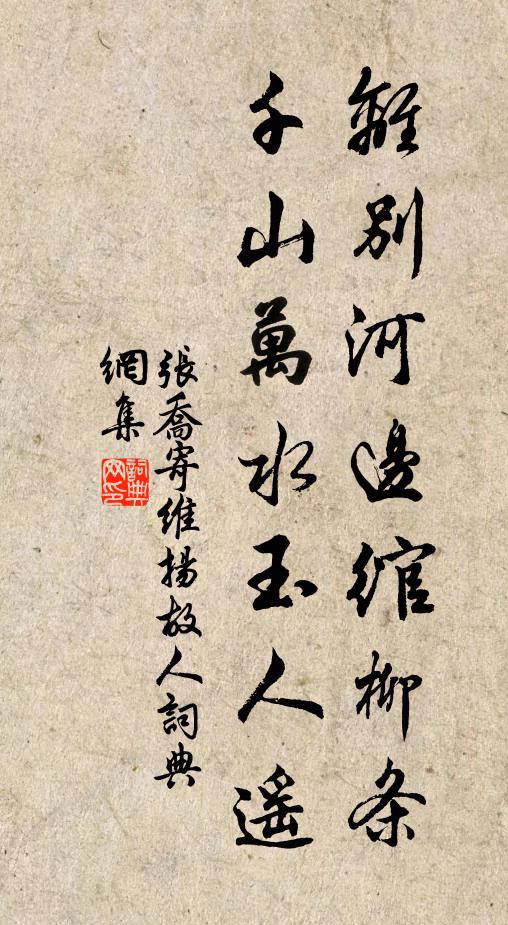 離別河邊綰柳条
千山萬水玉人遥
張喬寄維揚故人詞典
網集
詞典
网印